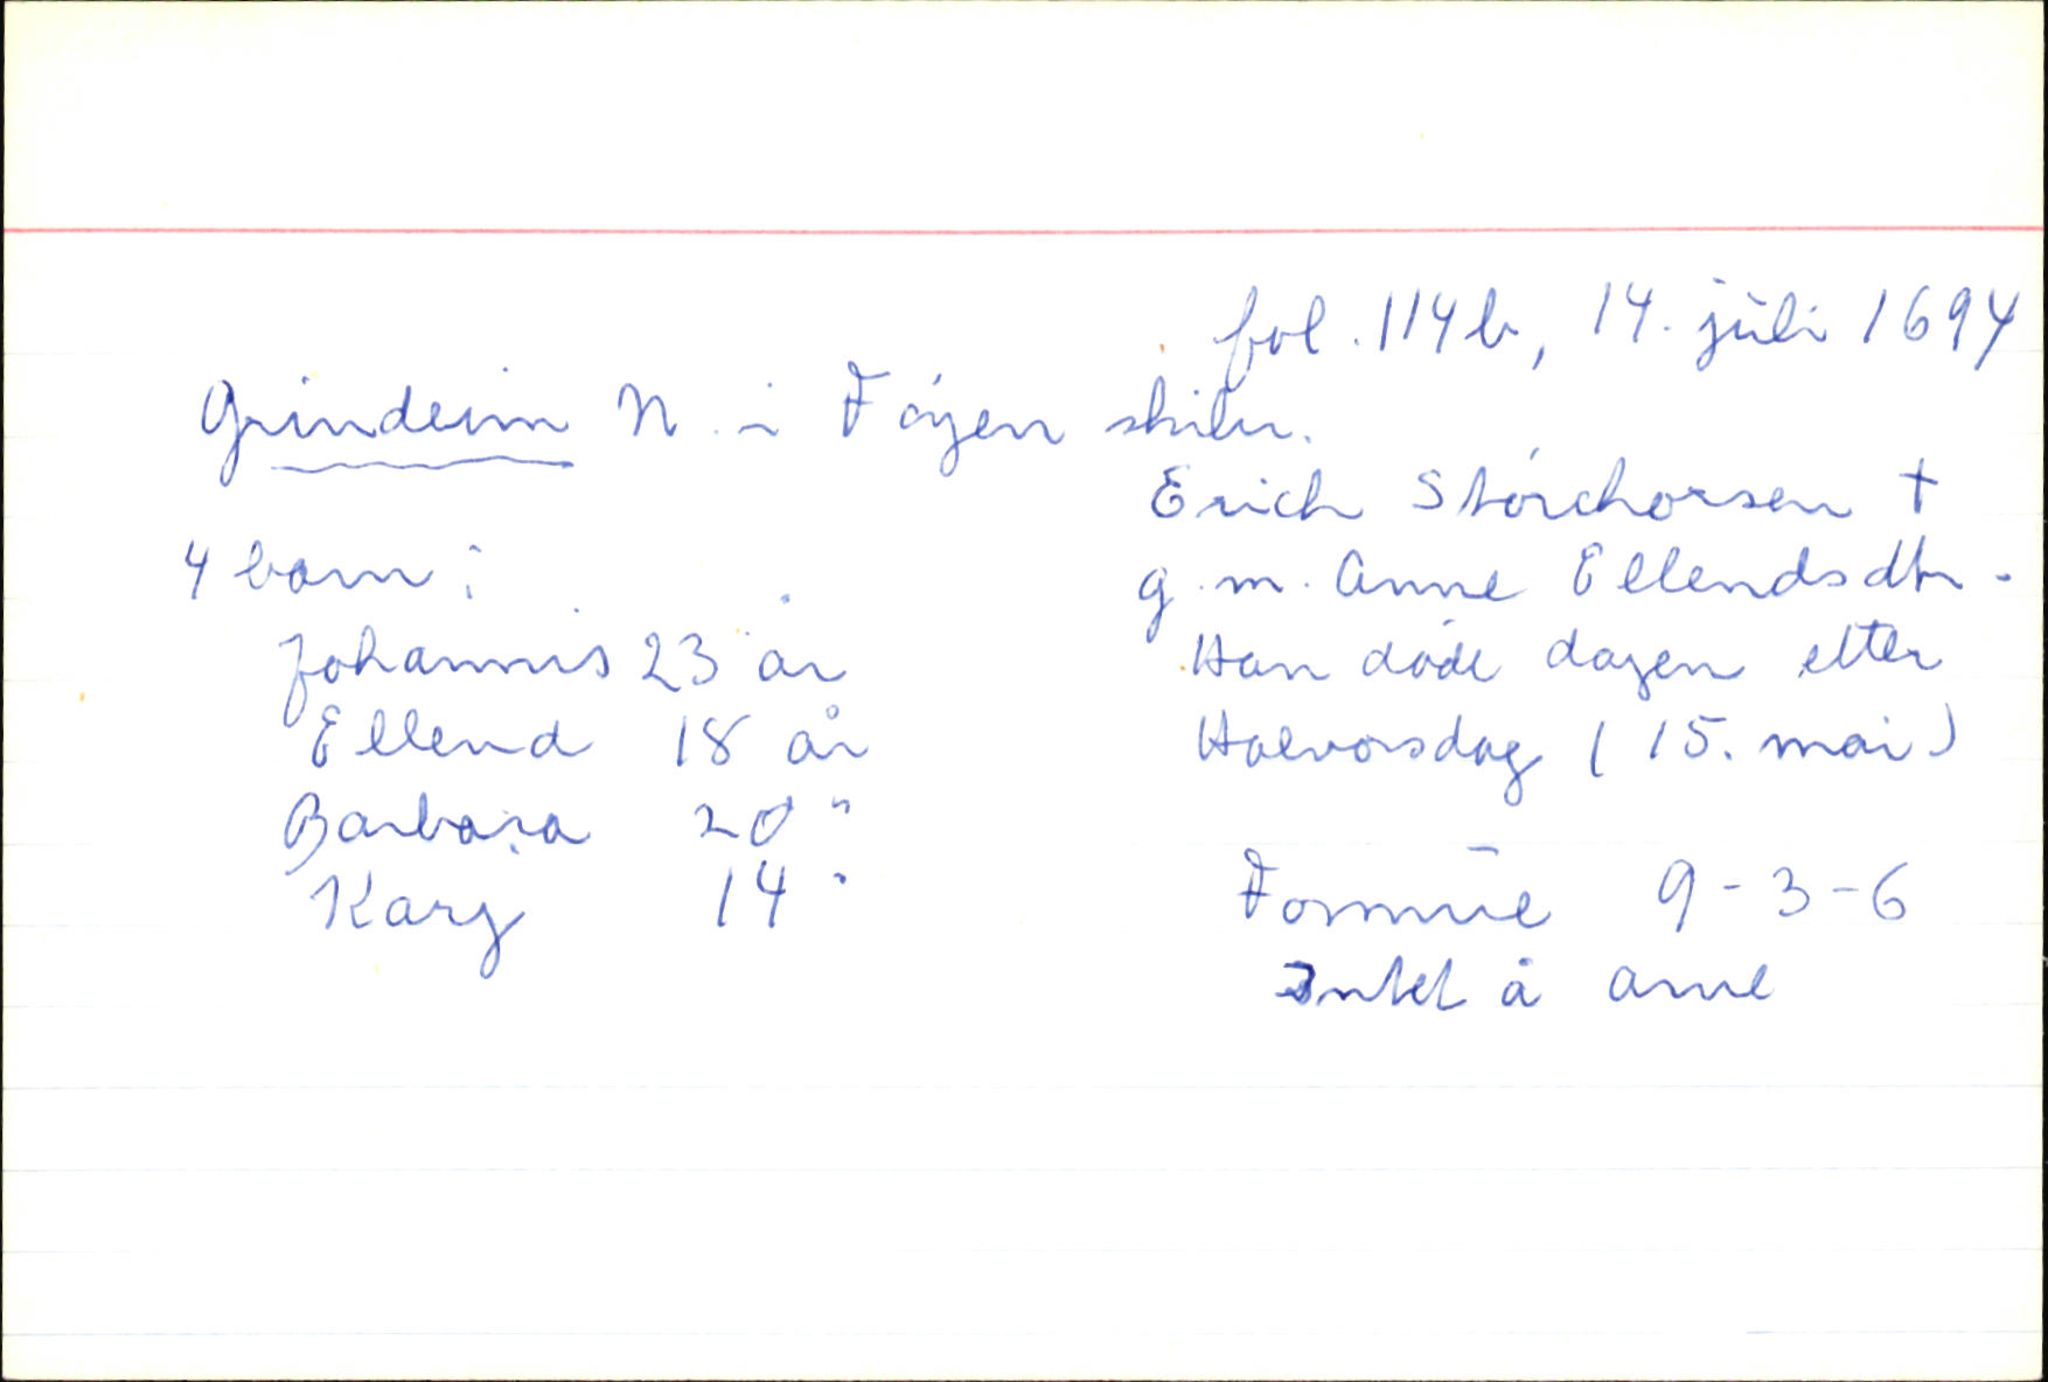 fol. 114b, 14. juli 1694
Grindeim N. i Føyen skibr.
Erich Størchorsen †
g.m. Anne Ellendsdtr.
Han døde dagen etter
Halvorsdag (15. mai)
Formue 9-3-6
Intet å arve
4 barn:
Johannis 23 år
Ellend 18 år
Barbara 20 "
Kary 14 "